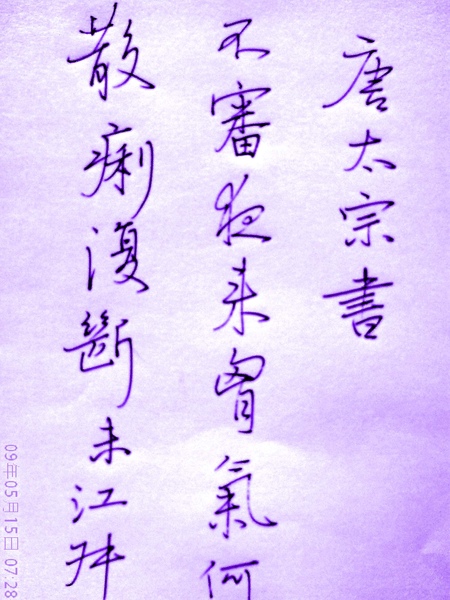 唐太宗書
不審夜来胷氣何
散痢復斷未江叔
09年05月15日 07:28